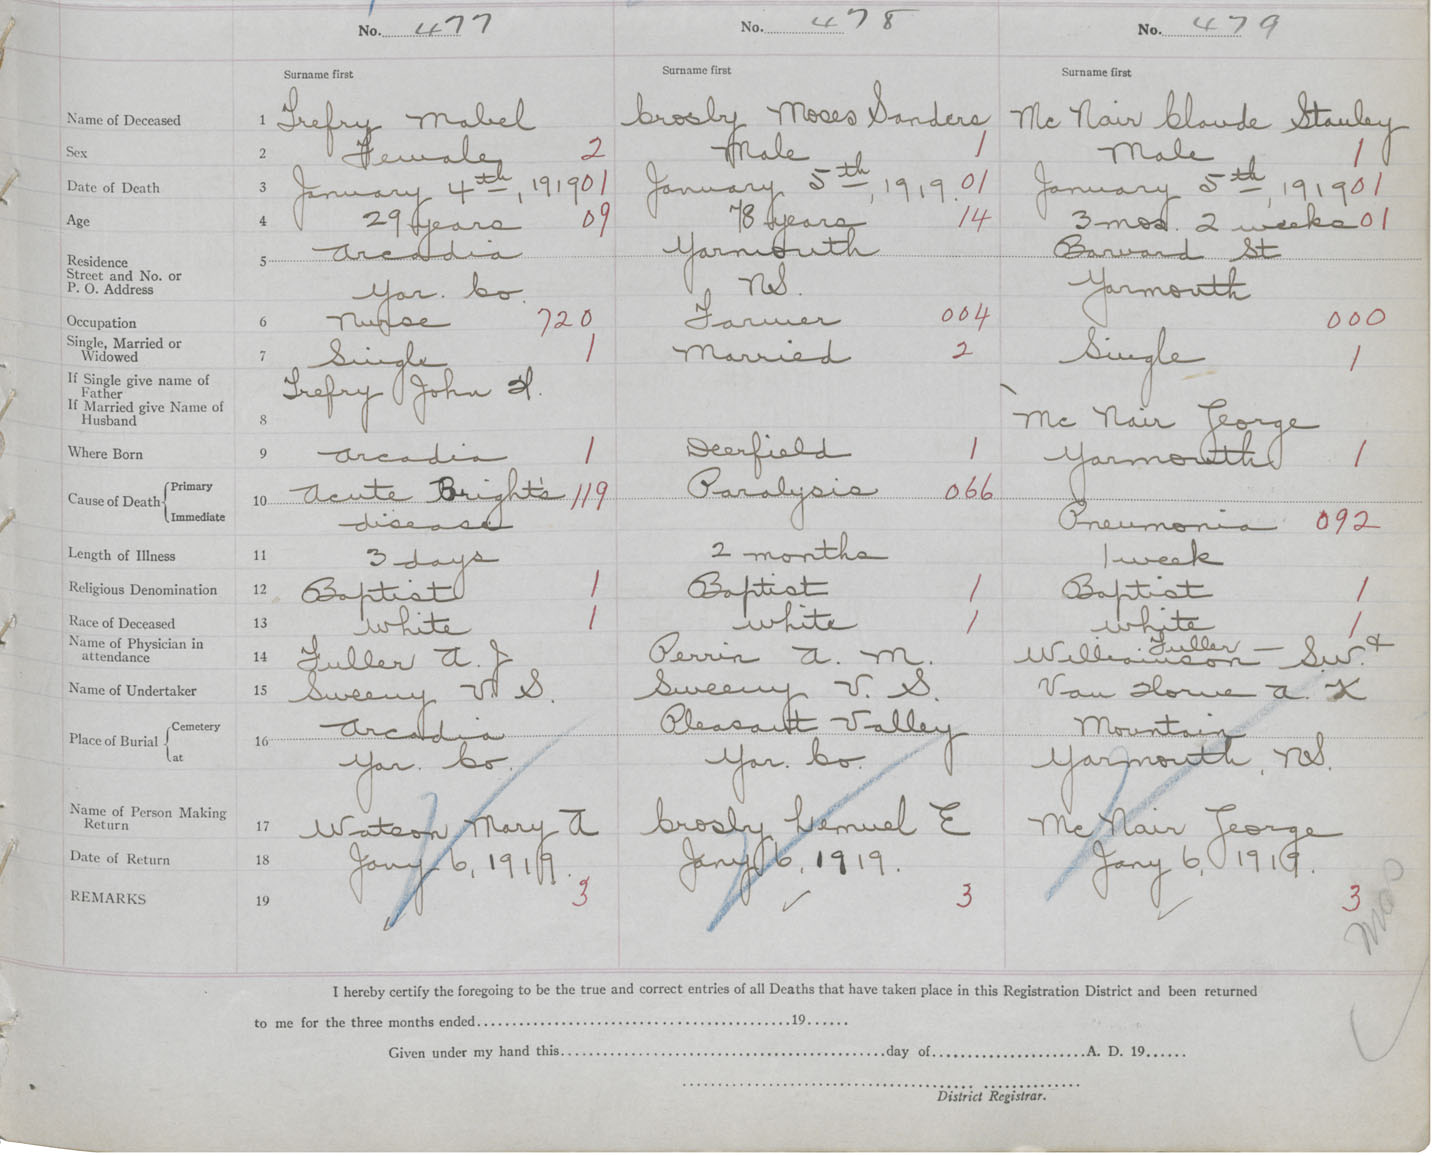 No. 477 No. 478 No. 479
Surname first Surname first Surname first
Name of Deceased 1 Trefry Mabel Crosby Moses Sanders Mc Nair Claude Stanley
Sex 2 Female 2 Male 1 Male 1
Date of Death 3 January 4th, 1919 01 January 5th, 1919. 01 January 5th, 1919 01
Age 4 29 years 09 78 years 14 3 mos. 2 weeks 01
Residence 5 Arcadia Yarmouth Barnard St
Street and No. or
P. O. Address Yar. Co. NS. Yarmouth
Occupation 6 Nurse 720 Farmer 004 000
Single, Married or
Widowed 7 Single 1 Married 2 Single 1
If Single give name of
Father Trefry John H.
If Married give Name of
Husband 8 Mc Nair George
Where Born 9 Arcadia 1 Deerfield 1 Yarmouth 1
Cause of Death Primary 10 Acute Bright's 119 Paralysis 066
Immediate disease Pneumonia 092
Length of Illness 11 3 days 2 months 1 week
Religious Denomination 12 Baptist 1 Baptist 1 Baptist 1
Race of Deceased 13 White 1 White 1 White 1
Name of Physician in
attendance 14 Fuller A. J Perrin A. M. Williamson Fuller – S.W. &
Name of Undertaker 15 Sweeny V. S. Sweeny V. S. Van Horne A. K
Place of Burial Cemetery 16 Arcadia Pleasant Valley Mountain
at Yar. Co. Yar. Co. Yarmouth, NS.
Name of Person Making
Return 17 Watson Mary A Crosby Lemuel E Mc Nair George
Date of Return 18 Jany 6, 1919. Jany 6, 1919. Jany 6, 1919.
REMARKS 19 3 3 3
mos
I hereby certify the foregoing to be the true and correct entries of all Deaths that have taken place in this Registration District and been returned
to me for the three months ended 19
Given under my hand this day of A. D. 19
District Registrar.